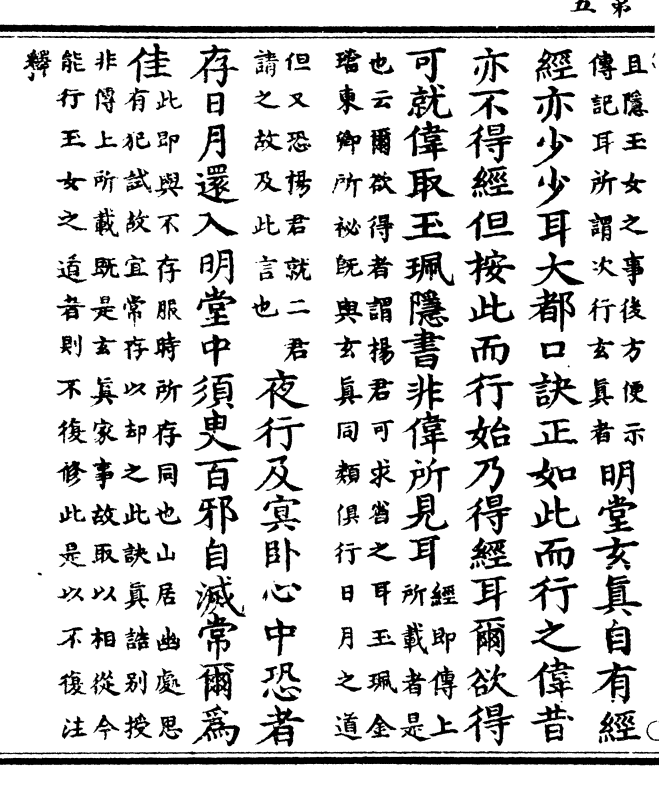 弟五
且隱玉女之事後方便示
傳記耳所謂次行玄眞者
明堂玄眞自有經
經亦少少耳大都口訣正如此而行之偉昔
亦不得經但按此而行始乃得經耳爾欲得
可就偉取玉珮隱書非偉所見耳
經即傳上
所載者是
也云爾欲得者謂楊君可求省之耳玉珮金
璫東卿所祕旣與玄眞同類俱行日月之道
但又恐楊君就二君
請之故及此言也
夜行及冥卧心中恐者
存日月還入明堂中須臾百邪自滅常爾爲
佳
此即與不存服時所存同也山居幽處思
有犯試故宜常存以却之此訣眞誥别授
非傳上所載旣是玄眞家事故取以相從今
能行玉女之道者則不復修此是以不復注
釋